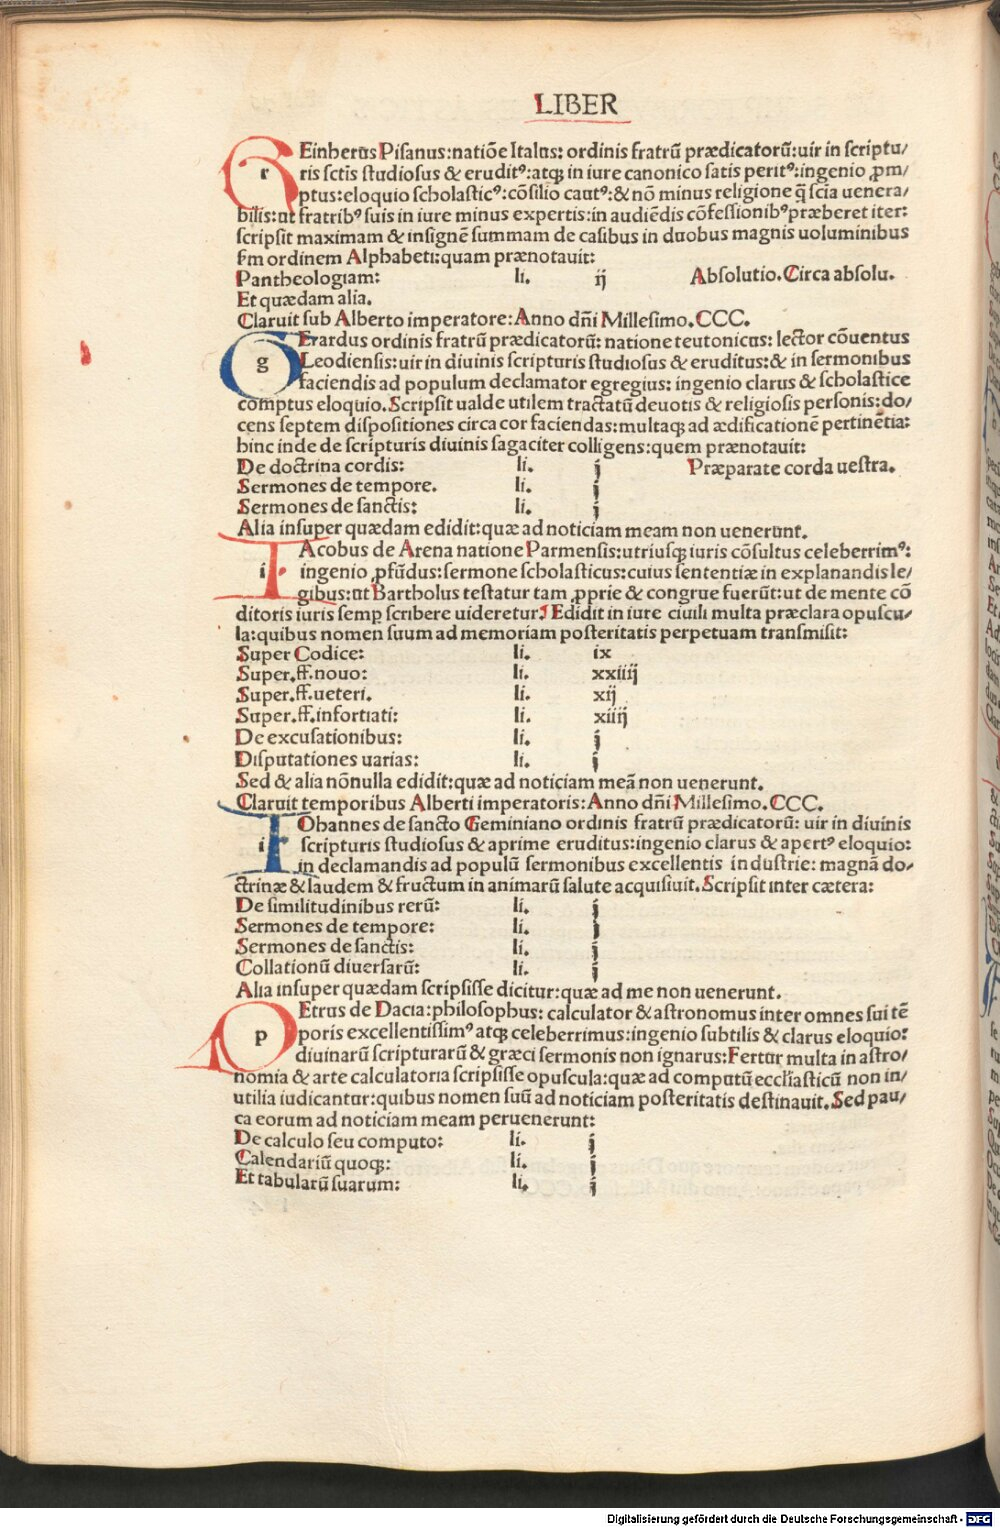 LIBER
REinherus Pisanus:natiõe Italus: ordinis fratrũ prædicatorũ:uir in scriptu/
ris sctis studiosus & erudit⁹:atqꝫ in iure canonico satis perit⁹:ingenio ꝓm/
ptus:eloquio scholastic⁹:cõsilio caut⁹:& nõ minus religione q̃ scia uenera/
bilis:ut fratrib⁹ suis in iure minus expertis:in audiẽdis cõfessionib⁹præberet iter:
scripsit maximam & insignẽ summam de casibus in duobus magnis uoluminibus
fm ordinem Alphabeti:quam prænotauit:
Pantheologiam: li. ij Absolutio.Circa absolu.
Et quædam alia.
Claruit sub Alberto imperatore:Anno dñi Millesimo.CCC.
GErardus ordinis fratrũ prædicatorũ: natione teutonicus: lector cõuentus
Leodiensis:uir in diuinis scripturis studiosus & eruditus:& in sermonibus
faciendis ad populum declamator egregius: ingenio clarus & scholastice
comptus eloquio.Scripsit ualde utilem tractatũ deuotis & religiosis personis:do/
cens septem dispositiones circa cor faciendas:multaqꝫ ad ædificationẽ pertinẽtia:
hinc inde de scripturis diuinis sagaciter colligens:quem prænotauit:
De doctrina cordis: li. j Præparate corda uestra.
Sermones de tempore. li. j
Sermones de sanctis: li. j
Alia insuper quædam edidit:quæ ad noticiam meam non uenerunt.
IAcobus de Arena natione Parmensis:utriusqꝫ iuris cõsultus celeberrim⁹:
ingenio ꝓfũdus:sermone scholasticus:cuius sententiæ in explanandis le/
gibus:ut Bartholus testatur tam ꝓprie & congrue fuerũt:ut de mente cõ
ditoris iuris semꝑ scribere uideretur.Edidit in iure ciuili multa præclara opuscu/
la:quibus nomen suum ad memoriam posteritatis perpetuam transmisit:
Super Codice: li. ix
Super.ff.nouo: li. xxiiij
Super.ff.ueteri. li. xij
Super.ff.infortiati: li. xiiij
De excusationibus: li. j
Disputationes uarias: li. j
Sed & alia nõnulla edidit:quæ ad noticiam meã non uenerunt.
Claruit temporibus Alberti imperatoris: Anno dñi Millesimo.CCC.
IOhannes de sancto Geminiano ordinis fratrũ prædicatorũ: uir in diuinis
scripturis studiosus & aprime eruditus:ingenio clarus & apert⁹ eloquio:
in declamandis ad populũ sermonibus excellentis industrie: magnã do/
ctrinæ & laudem & fructum in animarũ salute acquisiuit.Scripsit inter cætera:
De similitudinibus rerũ: li. j
Sermones de tempore: li. j
Sermones de sanctis: li. j
Collationũ diuersarũ: li. j
Alia insuper quædam scripsisse dicitur:quæ ad me non uenerunt.
PEtrus de Dacia:philosophus: calculator & astronomus inter omnes sui tẽ
poris excellentissim⁹ atqꝫ celeberrimus:ingenio subtilis & clarus eloquio:
diuinarũ scripturarũ & græci sermonis non ignarus:Fertur multa in astro/
nomia & arte calculatoria scripsisse opuscula:quæ ad computũ eccliasticũ non in/
utilia iudicantur:quibus nomen suũ ad noticiam posteritatis destinauit.Sed pau/
ca eorum ad noticiam meam peruenerunt:
De calculo seu computo: li. j
Calendariũ quoqꝫ: li. j
Et tabularũ suarum: li. j
Digitalisierung gefördert durch die Deutsche Forschungsgemeinschaft - DFG